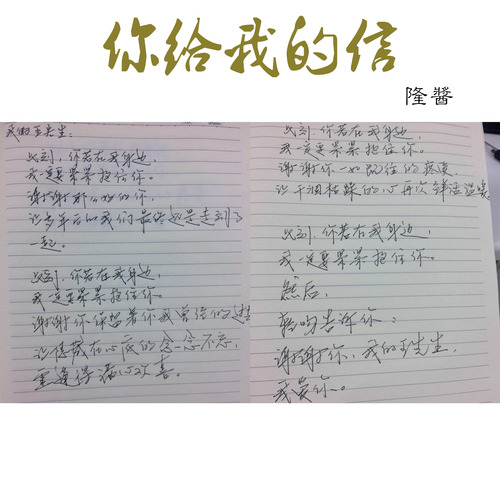 你给我的信
隆醬
我的王先生：
此刻，你若在我身边，
我一定要牢牢抱住你。
谢谢的你，
让多年后的我们最终还是走到了
一起。
此刻，你若在我身边，
我一定要牢牢抱住你。
谢谢你保留着你我曾经的过
让隐藏在心底的念念不忘，
重逢得满心欢喜。
此刻，你若在我身边，
我一定要牢牢抱住你。
谢谢你一如既往的疼
让干涸枯燥的心再次鲜活
此刻，你若在我身边，
我一定要牢牢抱住你。
然后，
告诉你：
谢谢你，我的王先生，
我爱你。